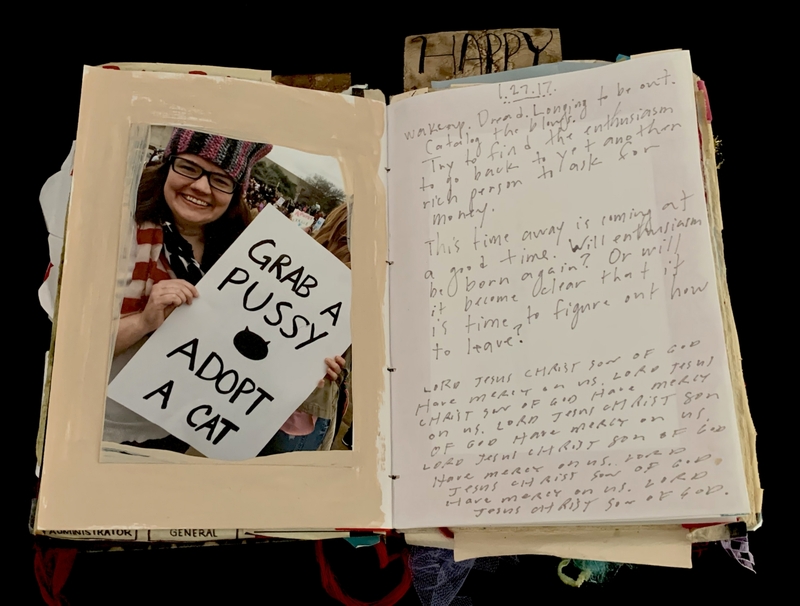 HAPPY
1.27.17.
wakeup. Dread. Longing to be out.
Catalog the blows.
Try to find the enthusiasm
to go back to yet another
rich person to ask for
money.
This time away is coming at
a good time. Will enthusiasm
be born again? Or will
it become clear that it
is time to figure out how
to leave?
LORD JESUS CHRIST SON OF GOD
Have mercy on us. LORD JESUS
CHRIST SON OF GOD Have MERCY
on us. LORD JESUS CHRIST SON
OF GOD Have MERCY on us.
LORD JESUS CHRIST SON OF GOD
Have mercy on us. LORD
JESUS CHRIST SON OF GOD.
Have mercy on us. LORD
JESUS CHRIST SON OF GOD.
GRAB A
PUSSY
ADOPT
A CAT
ADMINISTRATOR
GENERAL